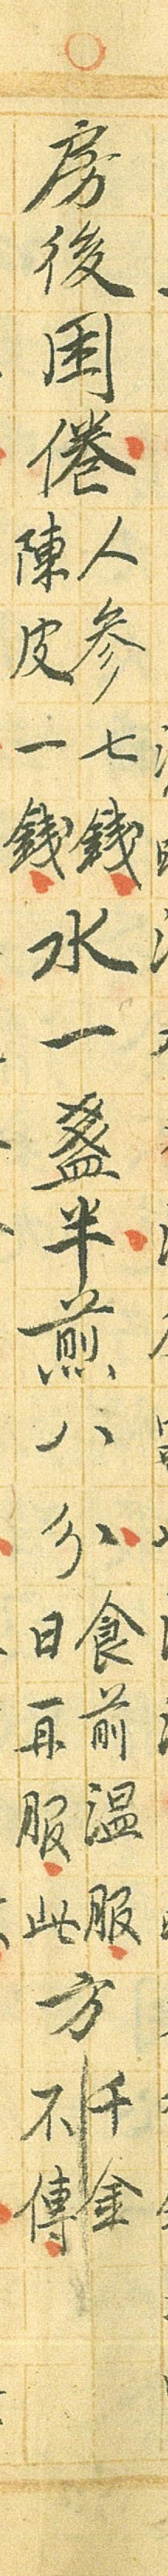 房後困倦人参七錢陳皮一錢水一盞半煎八分食前温服日再服此方千金不傳